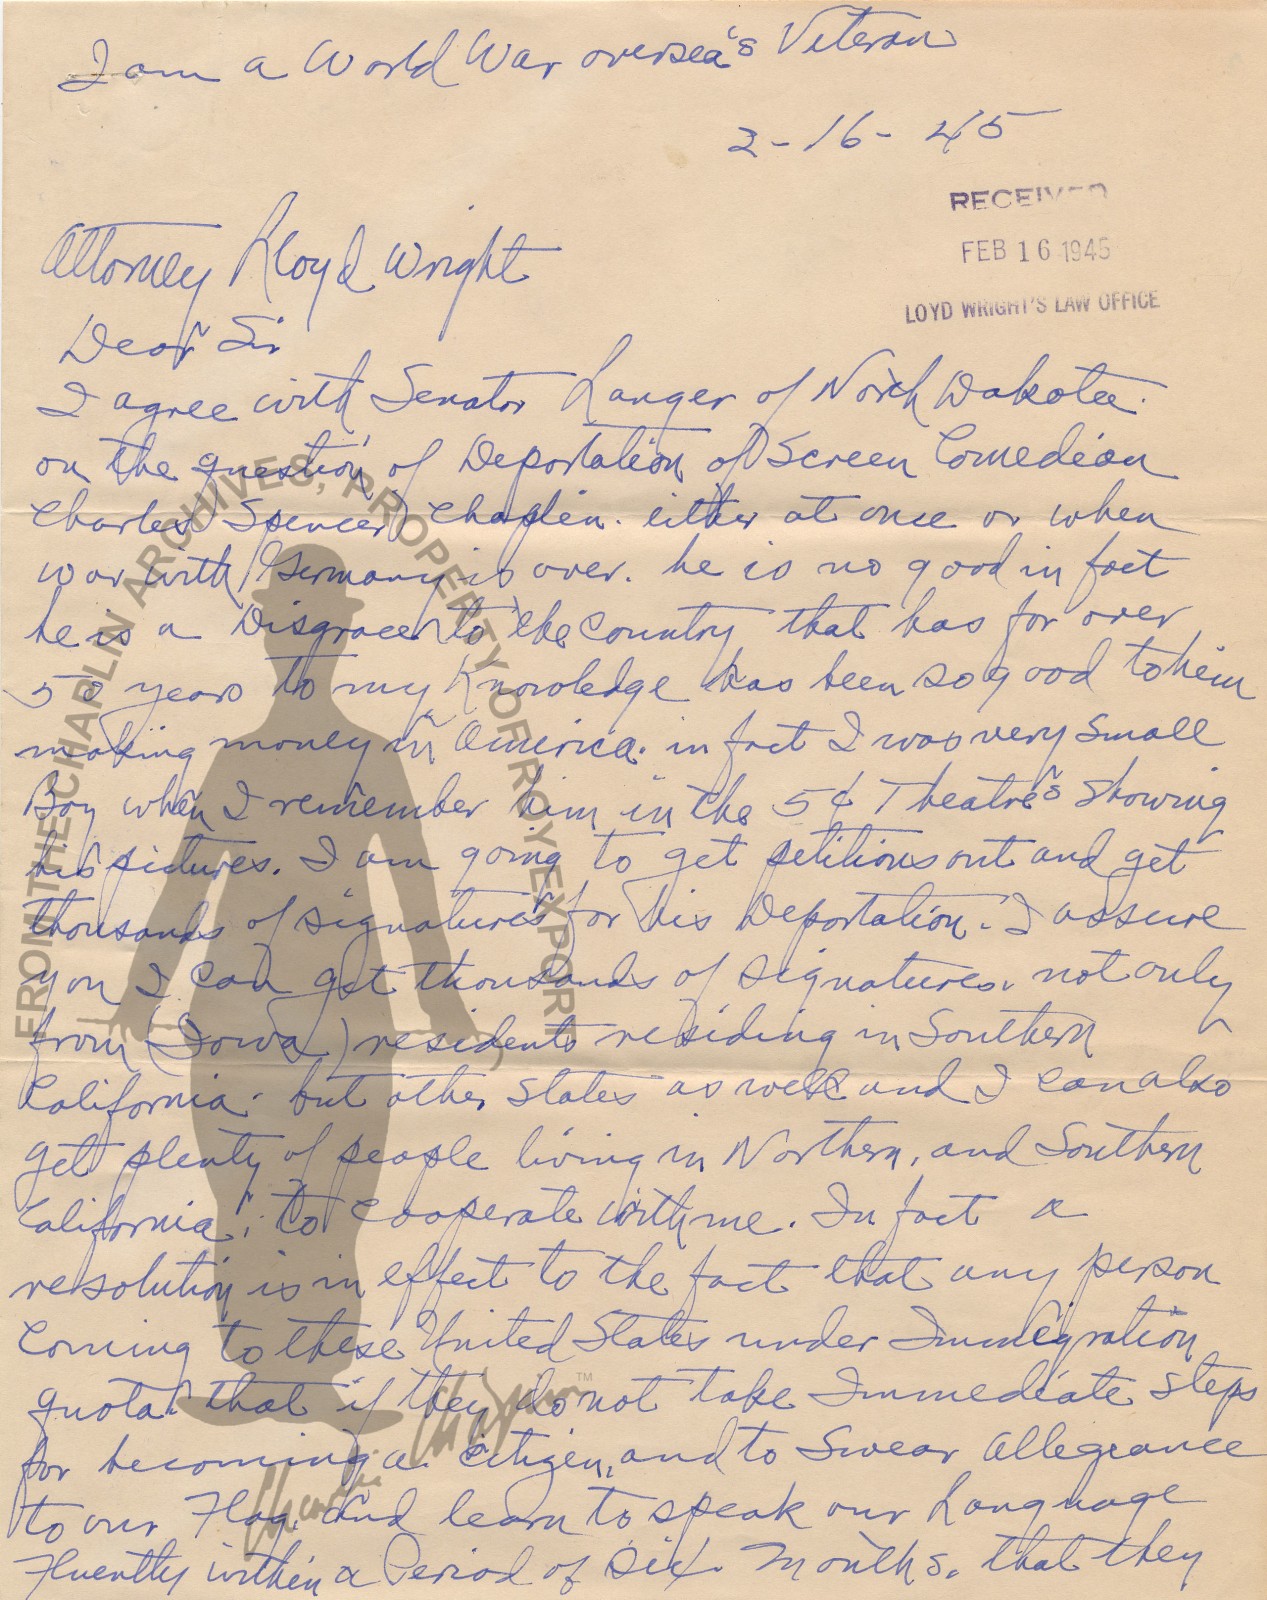 I am a World War oversea's Veteran
2-16-45
RECEIVED
FEB 16 1945
LOYD WRIGHT'S LAW OFFICE
Attorney Lloyd Wright
Dear Sir
I agree with Senator Langer of North Dakota.
on the question of Deportation of Screen Comedian
Charles Spencer Chaplin. either at once or when
war with Germany is over. he is no good in fact
he is a Disgrace to the Country that has for over
50 years to my Knowledge has been so good to him
making money in America. in fact I was very small
Boy when I remember him in the 5¢ Theatre's showing
his pictures. I am going to get petitions out and get
thousands of signatures for his Deportation. I assure
you I can get thousands of signatures. not only
from (Iowa) residents residing in Southern
California. but other States as well and I can also
get plenty of people living in Northern, and Southern
California, to cooperate with me. In fact a
resolution is in effect to the fact that any person
coming to these United States under Immigration
quota. that if they do not take Immediate steps
for becoming a citizen, and to Swear allegiance
to our Flag, and learn to speak our Language
Fluently within a Period of six. Months. that they
FROM THE CHAPLIN ARCHIVES, PROPERTY OF ROY EXPORT
Charlie Chaplin ™